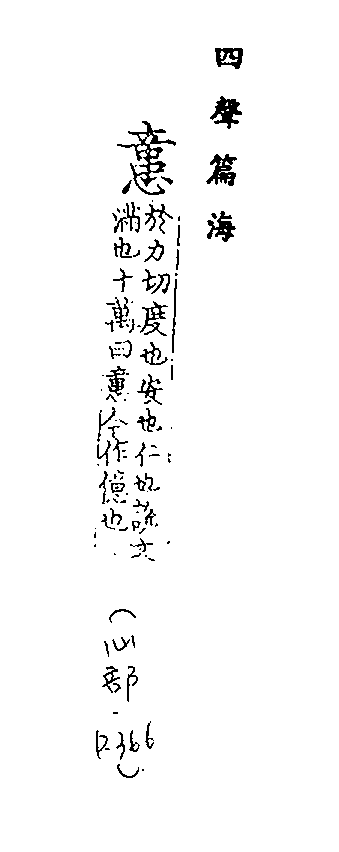 四聲篇海
𢡃
於力切度也安也仁也說文
滿也十萬曰𢡃今作億也
(心部-P.366)